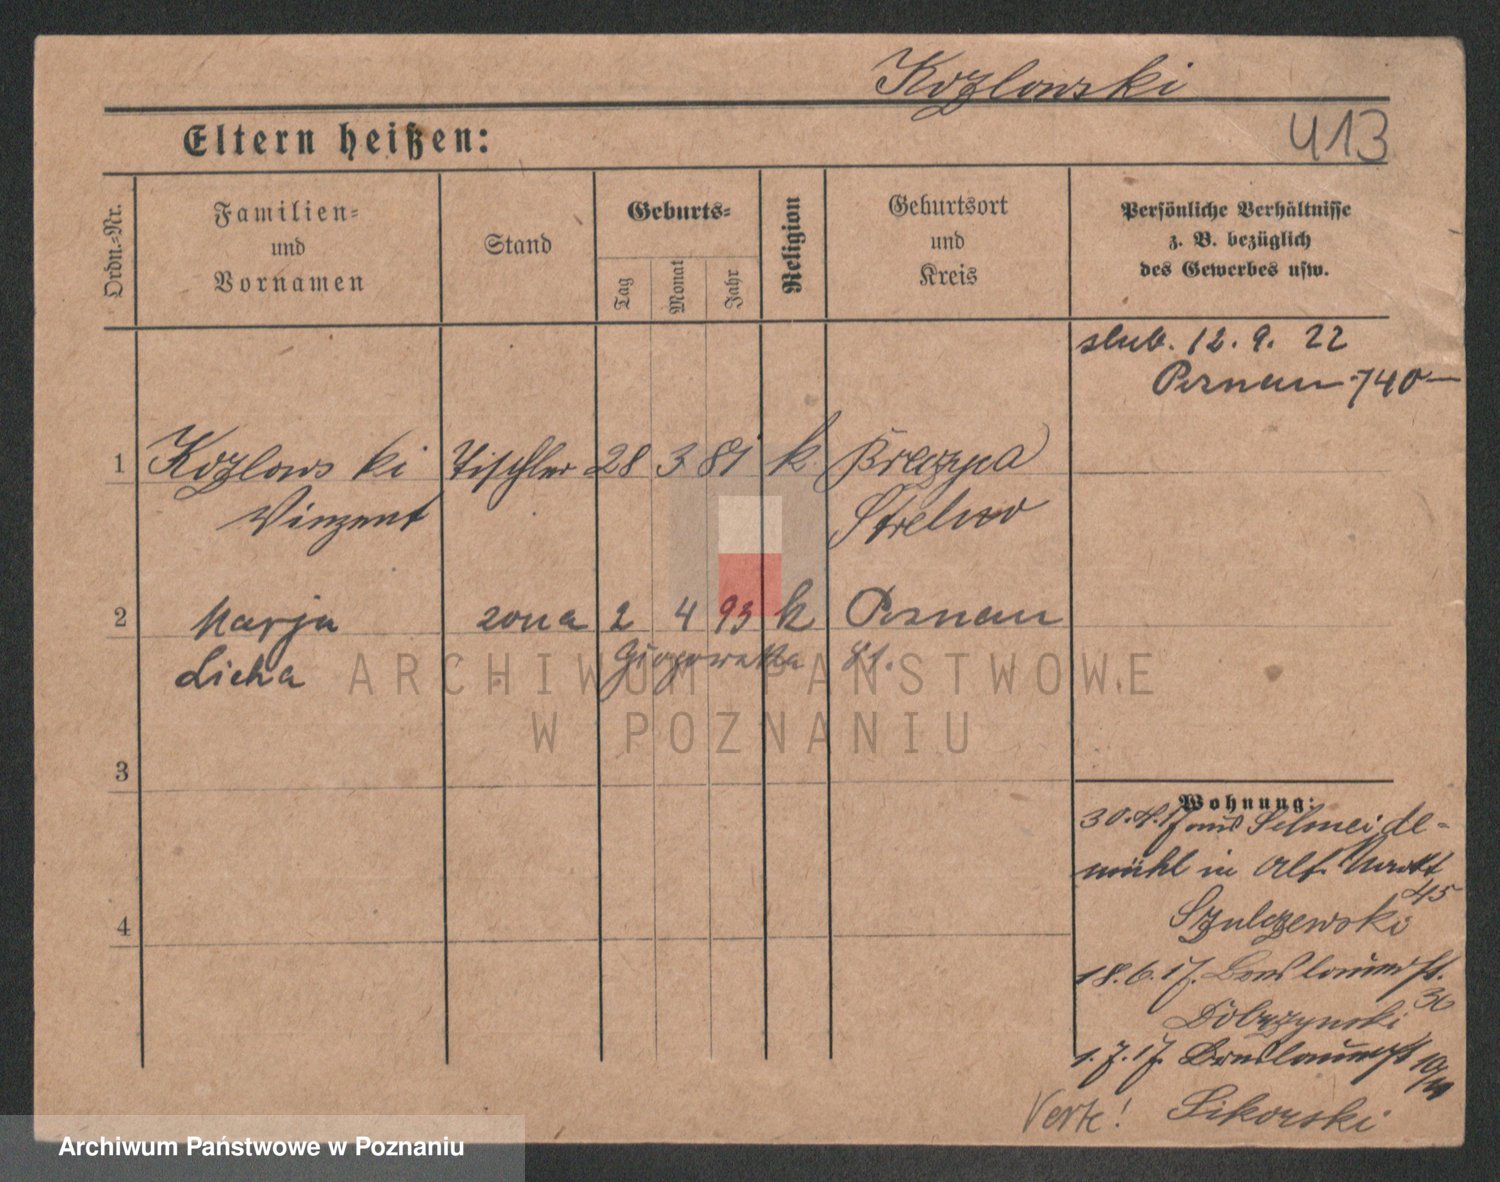 Kozlowski
Eltern heißen:
413
Ordn.-Nr.
Familien-
und
Vornamen
Stand
Geburts-
Tag
Monat
Jahr
Religion
Geburtsort
und
Kreis
Persönliche Verhältnisse
z. B. bezüglich
des Gewerbes usw.
slub. 12. 9. 22
Poznan 740
1 Kozlowski Tischler 28 3 81 k.
Vinzent Strelno
2 Marja zona 2 4 93 k Poznan
Licha 81.
3
4
Wohnung:
30.4.17 aus Schneide-
mühl in Alt. Markt
45
Szulczewski
18.6.17. Breslauerst.
36
Dobrzynski
1.7.17. Breslauerst
Verte! Sikorski
ARCHIWUM PAŃSTWOWE
W POZNANIU
Archiwum Państwowe w Poznaniu